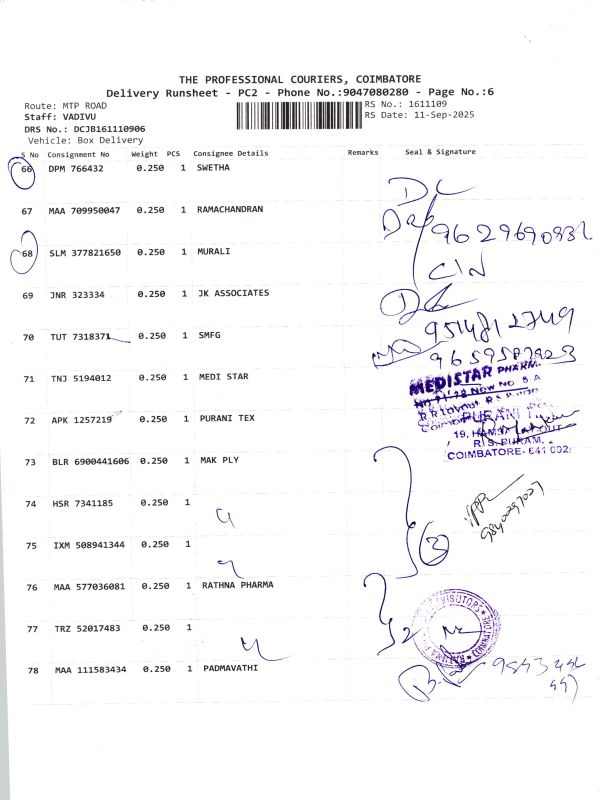 THE PROFESSIONAL COURIERS, COIMBATORE
Delivery Runsheet - PC2 - Phone No.:9047080280 - Page No.:6
Route: MTP ROAD
RS No.: 1611109
Staff: VADIVU
RS Date: 11-Sep-2025
DRS No.: DCJB161110906
Vehicle: Box Delivery
S No Consignment No Weight PCS Consignee Details Remarks Seal & Signature
66 DPM 766432 0.250 1 SWETHA
67 MAA 709950047 0.250 1 RAMACHANDRAN
68 SLM 377821650 0.250 1 MURALI
69 JNR 323334 0.250 1 JK ASSOCIATES
70 TUT 7318371 0.250 1 SMFG
71 TNJ 5194012 0.250 1 MEDI STAR
MEDISTAR PHARM.
72 APK 1257219 0.250 1 PURANI TEX
PURANI
R.S. PURAM.
COIMBATORE- 641 002.
73 BLR 6900441606 0.250 1 MAK PLY
74 HSR 7341185 0.250 1
75 IXM 508941344 0.250 1
3
76 MAA 577036081 0.250 1 RATHNA PHARMA
77 TRZ 52017483 0.250 1
2
78 MAA 111583434 0.250 1 PADMAVATHI